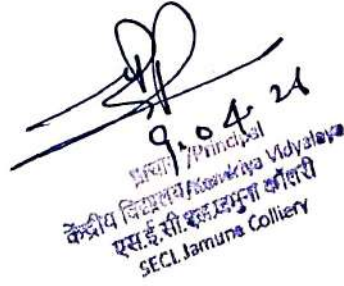 9.04.24
प्राचार्य/Principal
केंद्रीय विद्यालय/Kendriya Vidyalaya
एस.ई.सी.एल.जमुना कॉलरी
SECL Jamuna Colliery